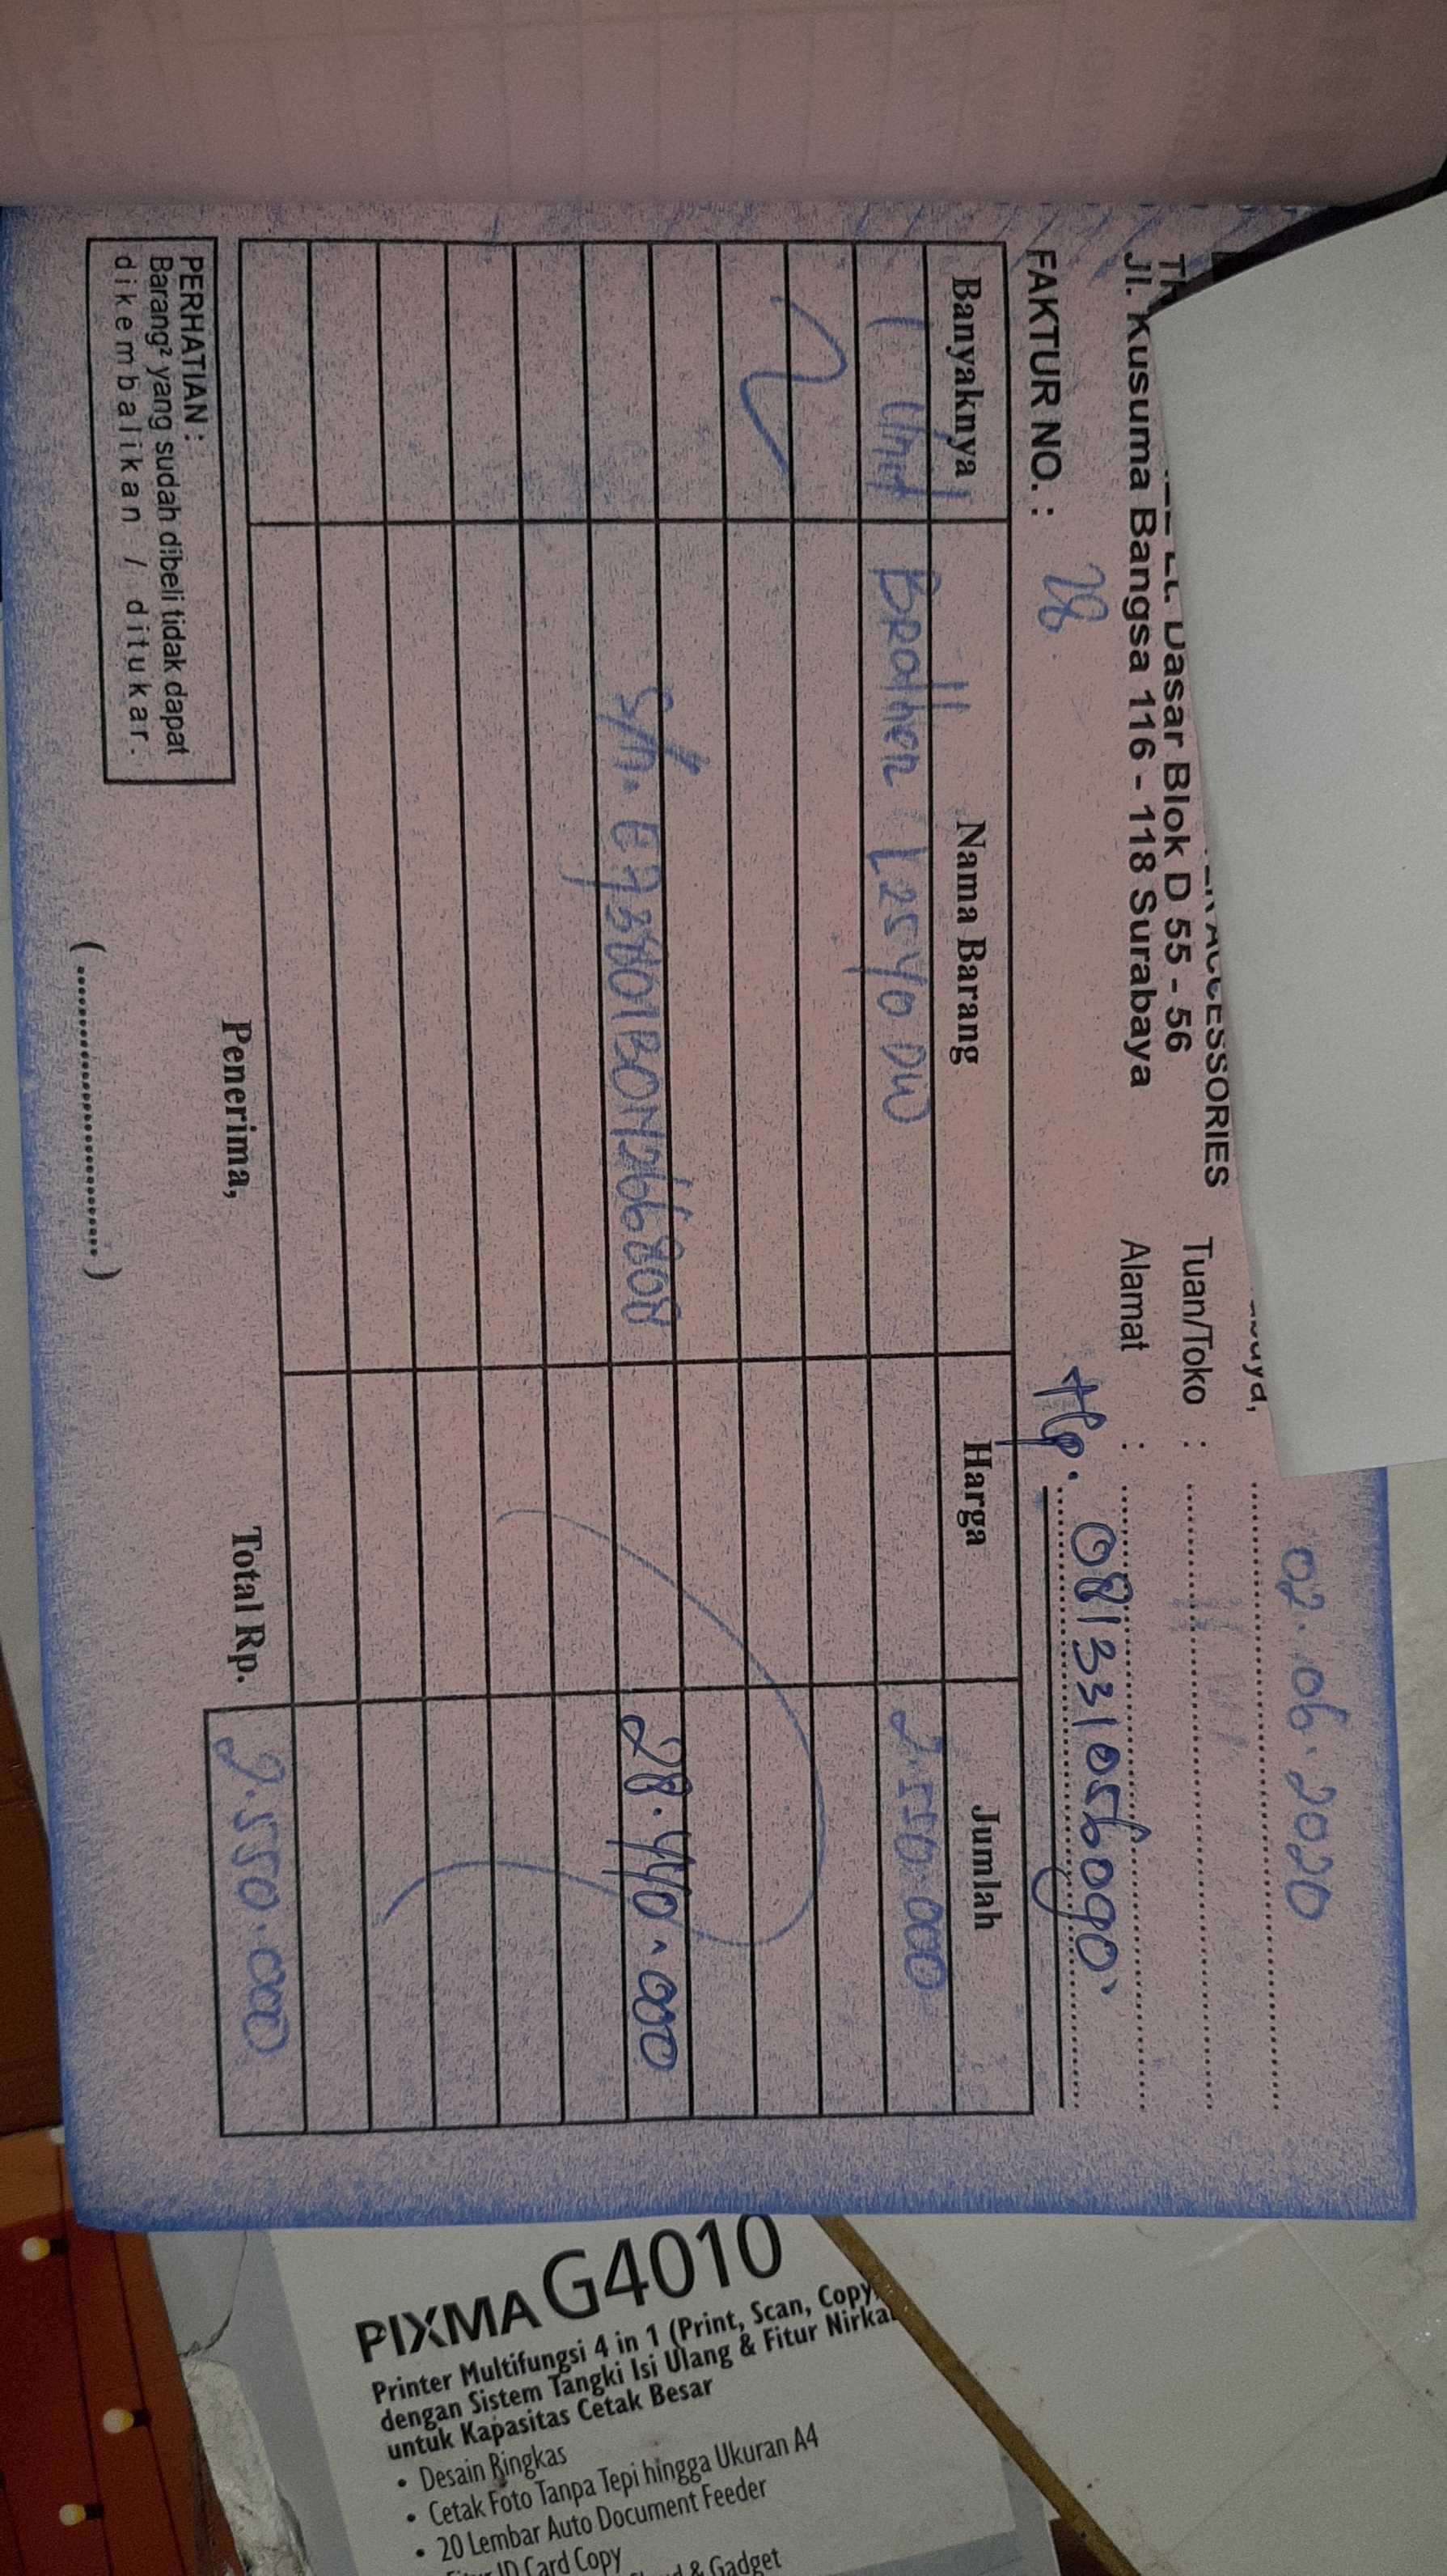 ACCESSORIES
Lt. Dasar Blok D 55 - 56
Jl. Kusuma Bangsa 116 - 118 Surabaya
02.06.2020
Tuan/Toko :
Alamat :
FAKTUR NO. : 28.
Tlp. 081331056090
Banyaknya Nama Barang Harga Jumlah
1 Unit Brother L2540 DW 2.550.000
S/n. E73801
28.440.000
Total Rp. 2.550.000
Penerima,
(....................)
PERHATIAN :
Barang² yang sudah dibeli tidak dapat
dikembalikan / ditukar.
PIXMA G4010
Printer Multifungsi 4 in 1 (Print, Scan, Copy,
dengan Sistem Tangki Isi Ulang & Fitur
untuk Kapasitas Cetak Besar
• Desain Ringkas
• Cetak Foto Tanpa Tepi hingga Ukuran A4
• 20 Lembar Auto Document Feeder
ID Card Copy
& Gadget